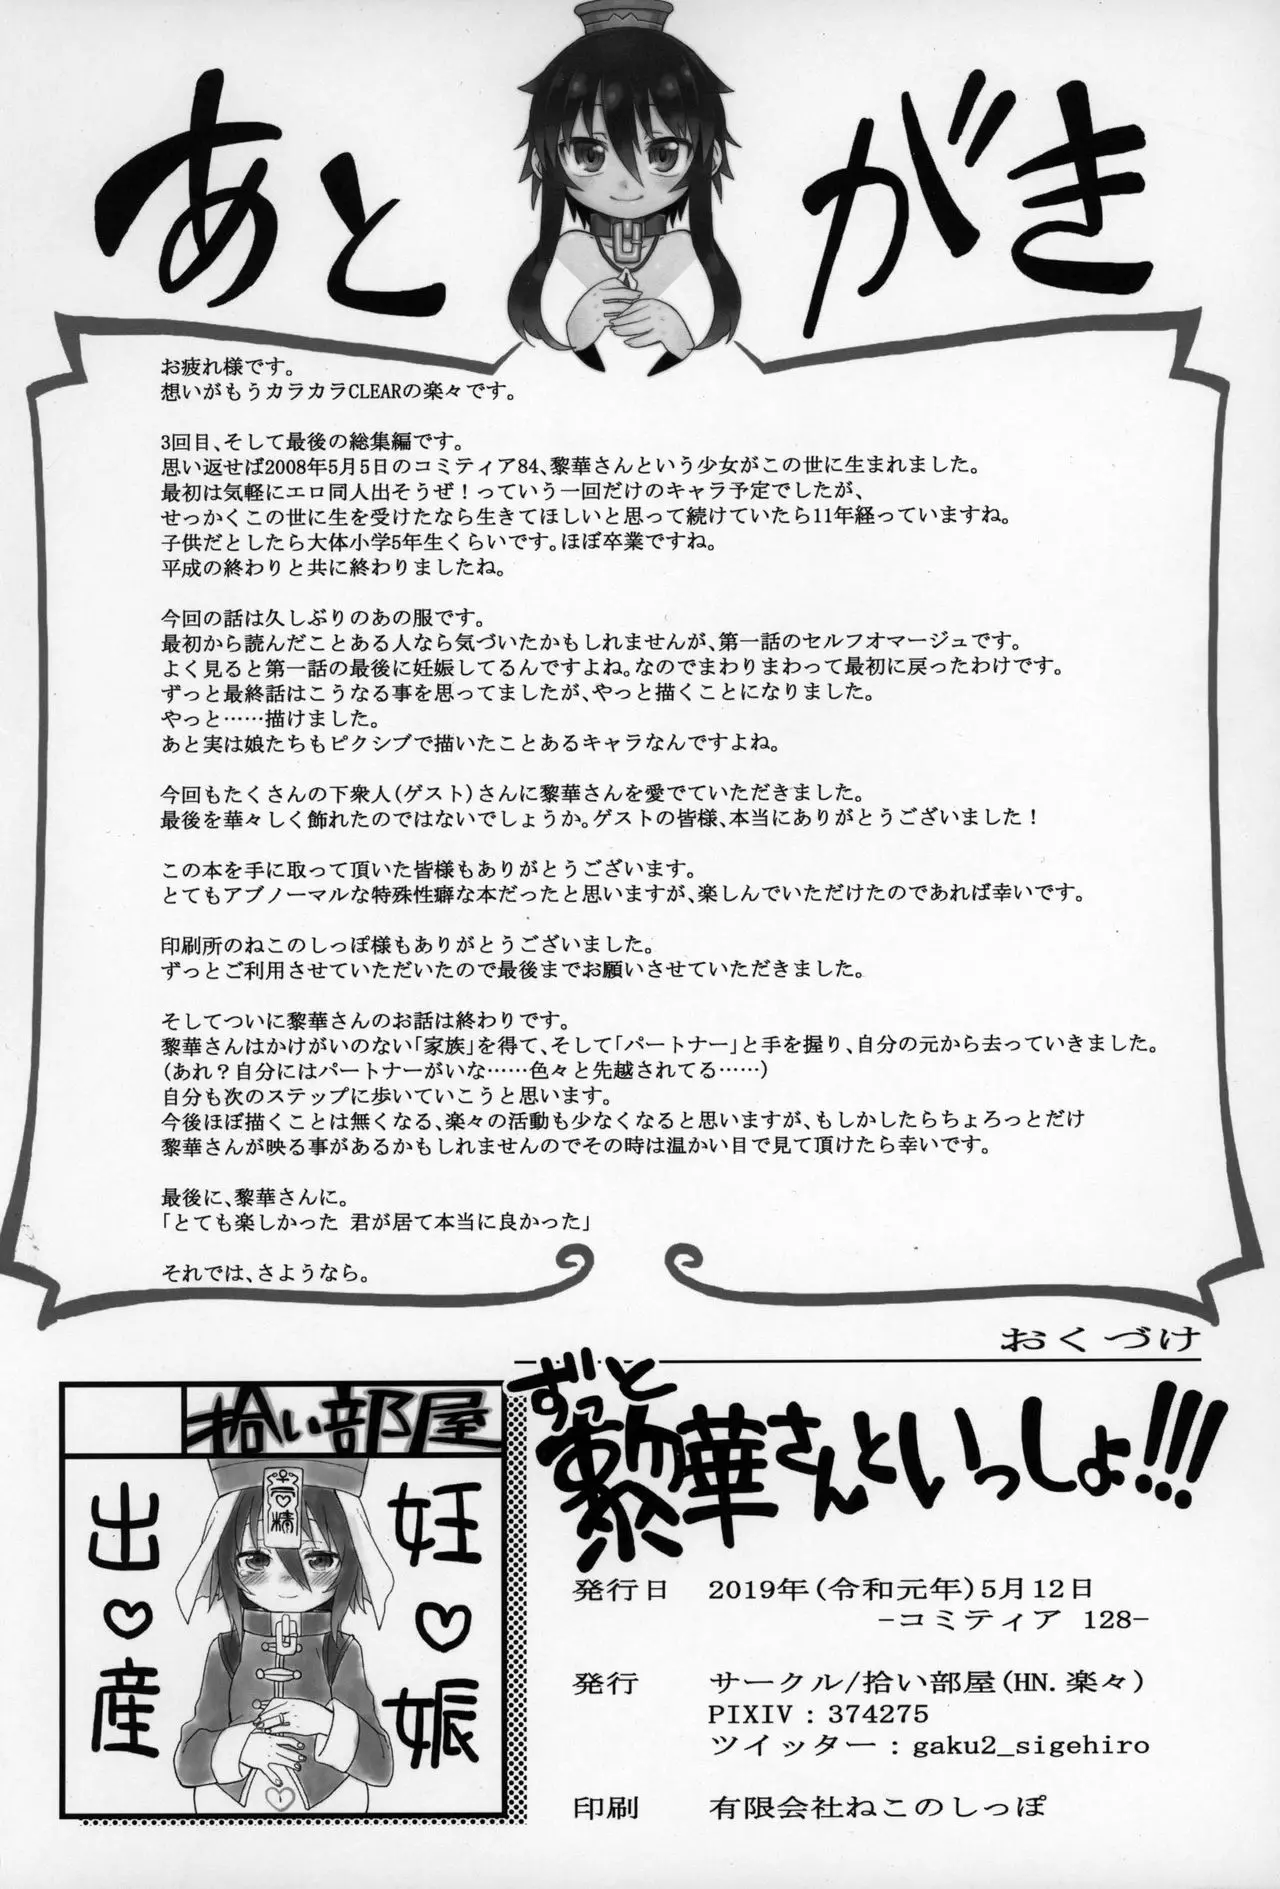 あとがき
お疲れ様です。
想いがもうカラカラCLEARの楽々です。
3回目、そして最後の総集編です。
思い返せば2008年5月5日のコミティア84、黎華さんという少女がこの世に生まれました。
最初は気軽にエロ同人出そうぜ！っていう一回だけのキャラ予定でしたが、
せっかくこの世に生を受けたなら生きてほしいと思って続けていたら11年経っていますね。
子供だとしたら大体小学5年生くらいです。ほぼ卒業ですね。
平成の終わりと共に終わりましたね。
今回の話は久しぶりのあの服です。
最初から読んだことある人なら気づいたかもしれませんが、第一話のセルフオマージュです。
よく見ると第一話の最後に妊娠してるんですよね。なのでまわりまわって最初に戻ったわけです。
ずっと最終話はこうなる事を思ってましたが、やっと描くことになりました。
やっと……描けました。
あと実は娘たちもピクシブで描いたことあるキャラなんですよね。
今回もたくさんの下衆人(ゲスト)さんに黎華さんを愛でていただきました。
最後を華々しく飾れたのではないでしょうか。ゲストの皆様、本当にありがとうございました！
この本を手に取って頂いた皆様もありがとうございます。
とてもアブノーマルな特殊性癖な本だったと思いますが、楽しんでいただけたのであれば幸いです。
印刷所のねこのしっぽ様もありがとうございました。
ずっとご利用させていただいたので最後までお願いさせていただきました。
そしてついに黎華さんのお話は終わりです。
黎華さんはかけがいのない「家族」を得て、そして「パートナー」と手を握り、自分の元から去っていきました。
(あれ？自分にはパートナーがいな……色々と先越されてる……)
自分も次のステップに歩いていこうと思います。
今後ほぼ描くことは無くなる、楽々の活動も少なくなると思いますが、もしかしたらちょろっとだけ
黎華さんが映る事があるかもしれませんのでその時は温かい目で見て頂けたら幸いです。
最後に、黎華さんに。
「とても楽しかった 君が居て本当に良かった」
それでは、さようなら。
おくづけ
ずっと
黎華さんといっしょ!!!
拾い部屋
妊♡娠
出♡産
発行日 2019年(令和元年)5月12日
-コミティア 128-
発行 サークル/拾い部屋(HN.楽々)
PIXIV：374275
ツイッター：gaku2_sigehiro
印刷 有限会社ねこのしっぽ